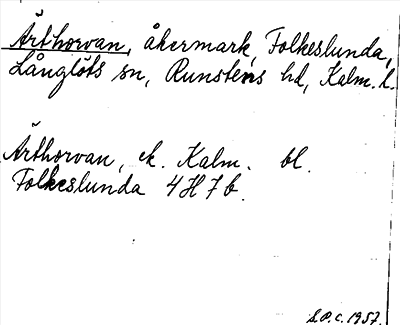 Ärthorvan, åkermark, Folkeslunda,
Långlöts sn, Runstens hd, Kalm. l.
Ärthorvan, ek. Kalm. bl.
Folkeslunda 4H7b.
S.P.C. 1957.